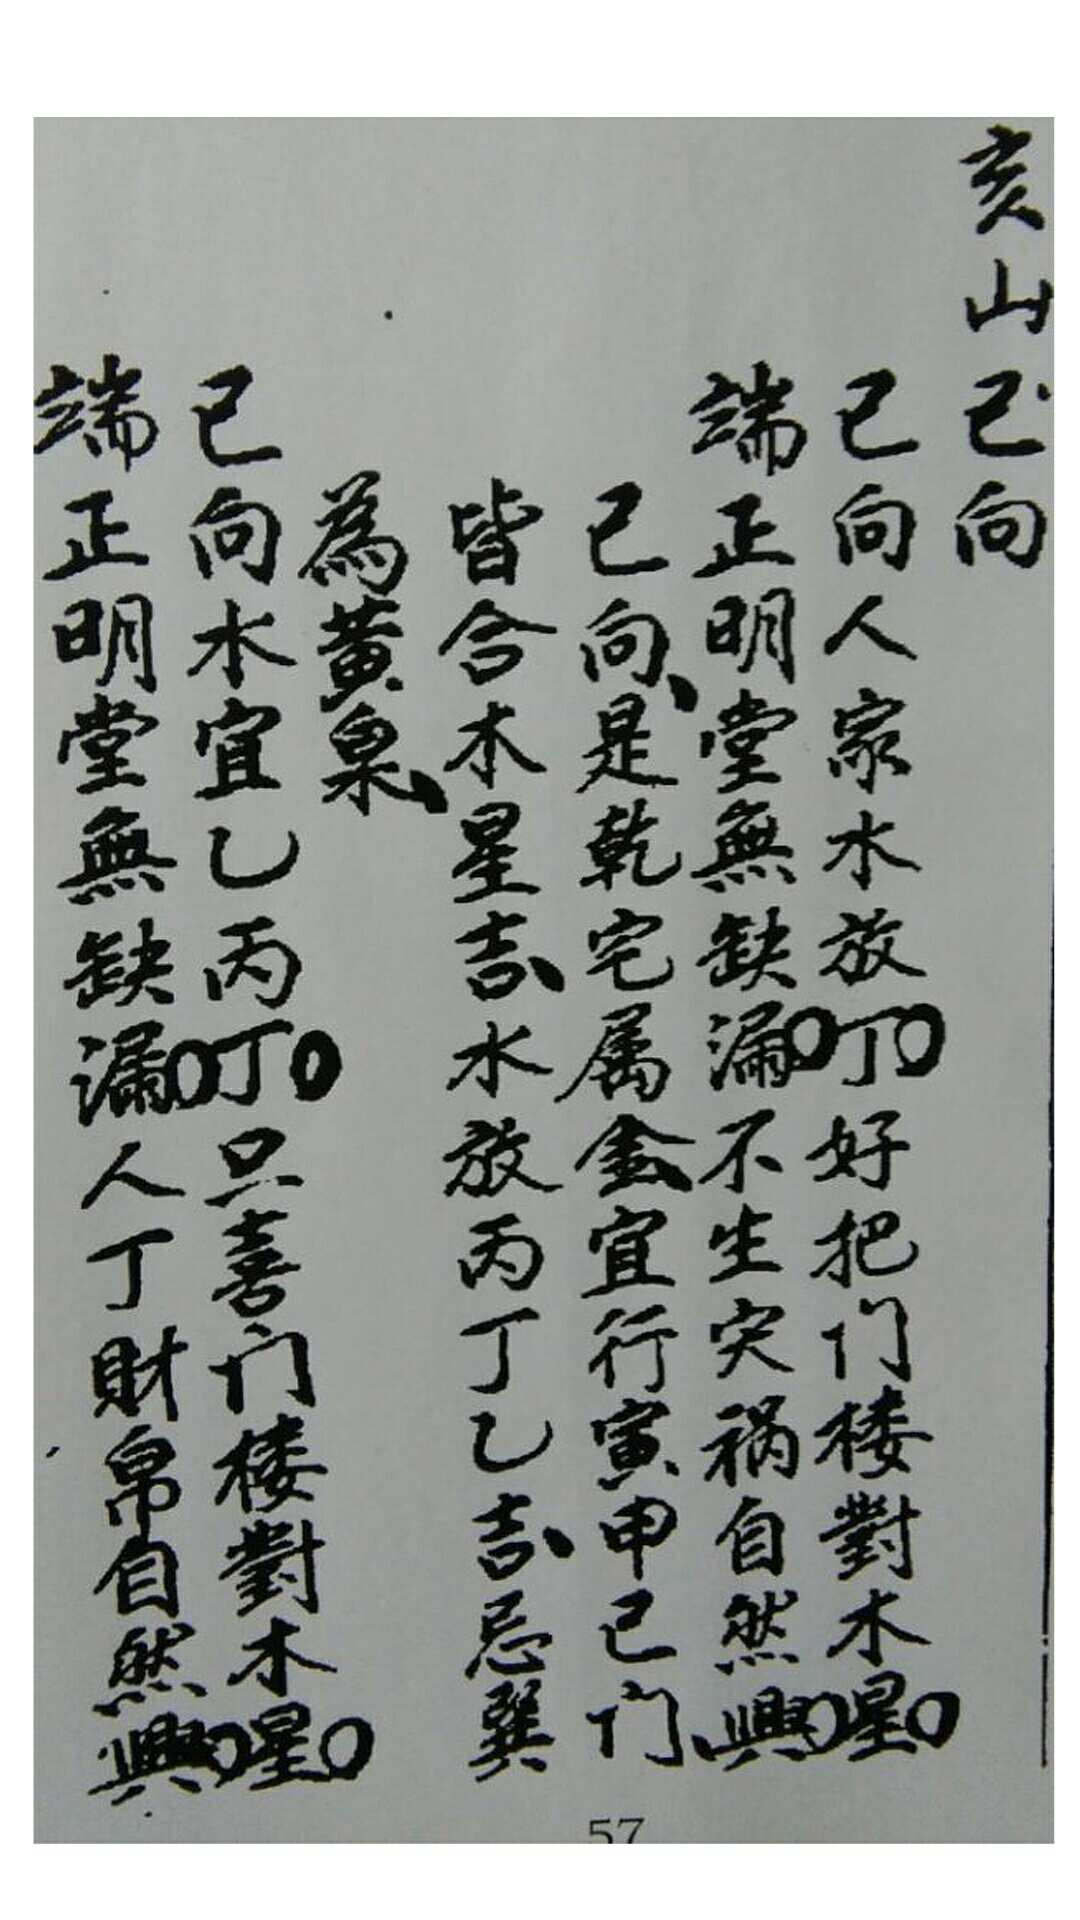 亥山巳向
巳向人家水放丁○好把门楼對木星○
端正明堂無缺漏○不生灾祸自然興○
巳向、是乾宅属金、宜行寅申巳门
皆合木星吉、水放丙丁乙吉、忌巽
為黄泉、
巳向水宜乙丙丁○只喜门楼對木星○
端正明堂無缺漏○人丁財帛自然興○
57